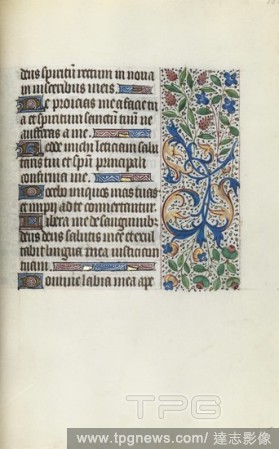 deus spiritum rectum in nova
in visceribus meis.
Ne proicias me a facie tu
a et spiritum sanctum tuum ne
auferas a me.
Redde michi leticiam salu
taris tui et spu principali
confirma me.
Docebo iniquos vias tuas
et impii ad te convertentur.
Libera me de sanguinib
deus deus salutis mee et exul
tabit lingua mea iusticiam
tuam.
Domine labia mea ape
TPG
www.tpgnews.com/ 達志影像